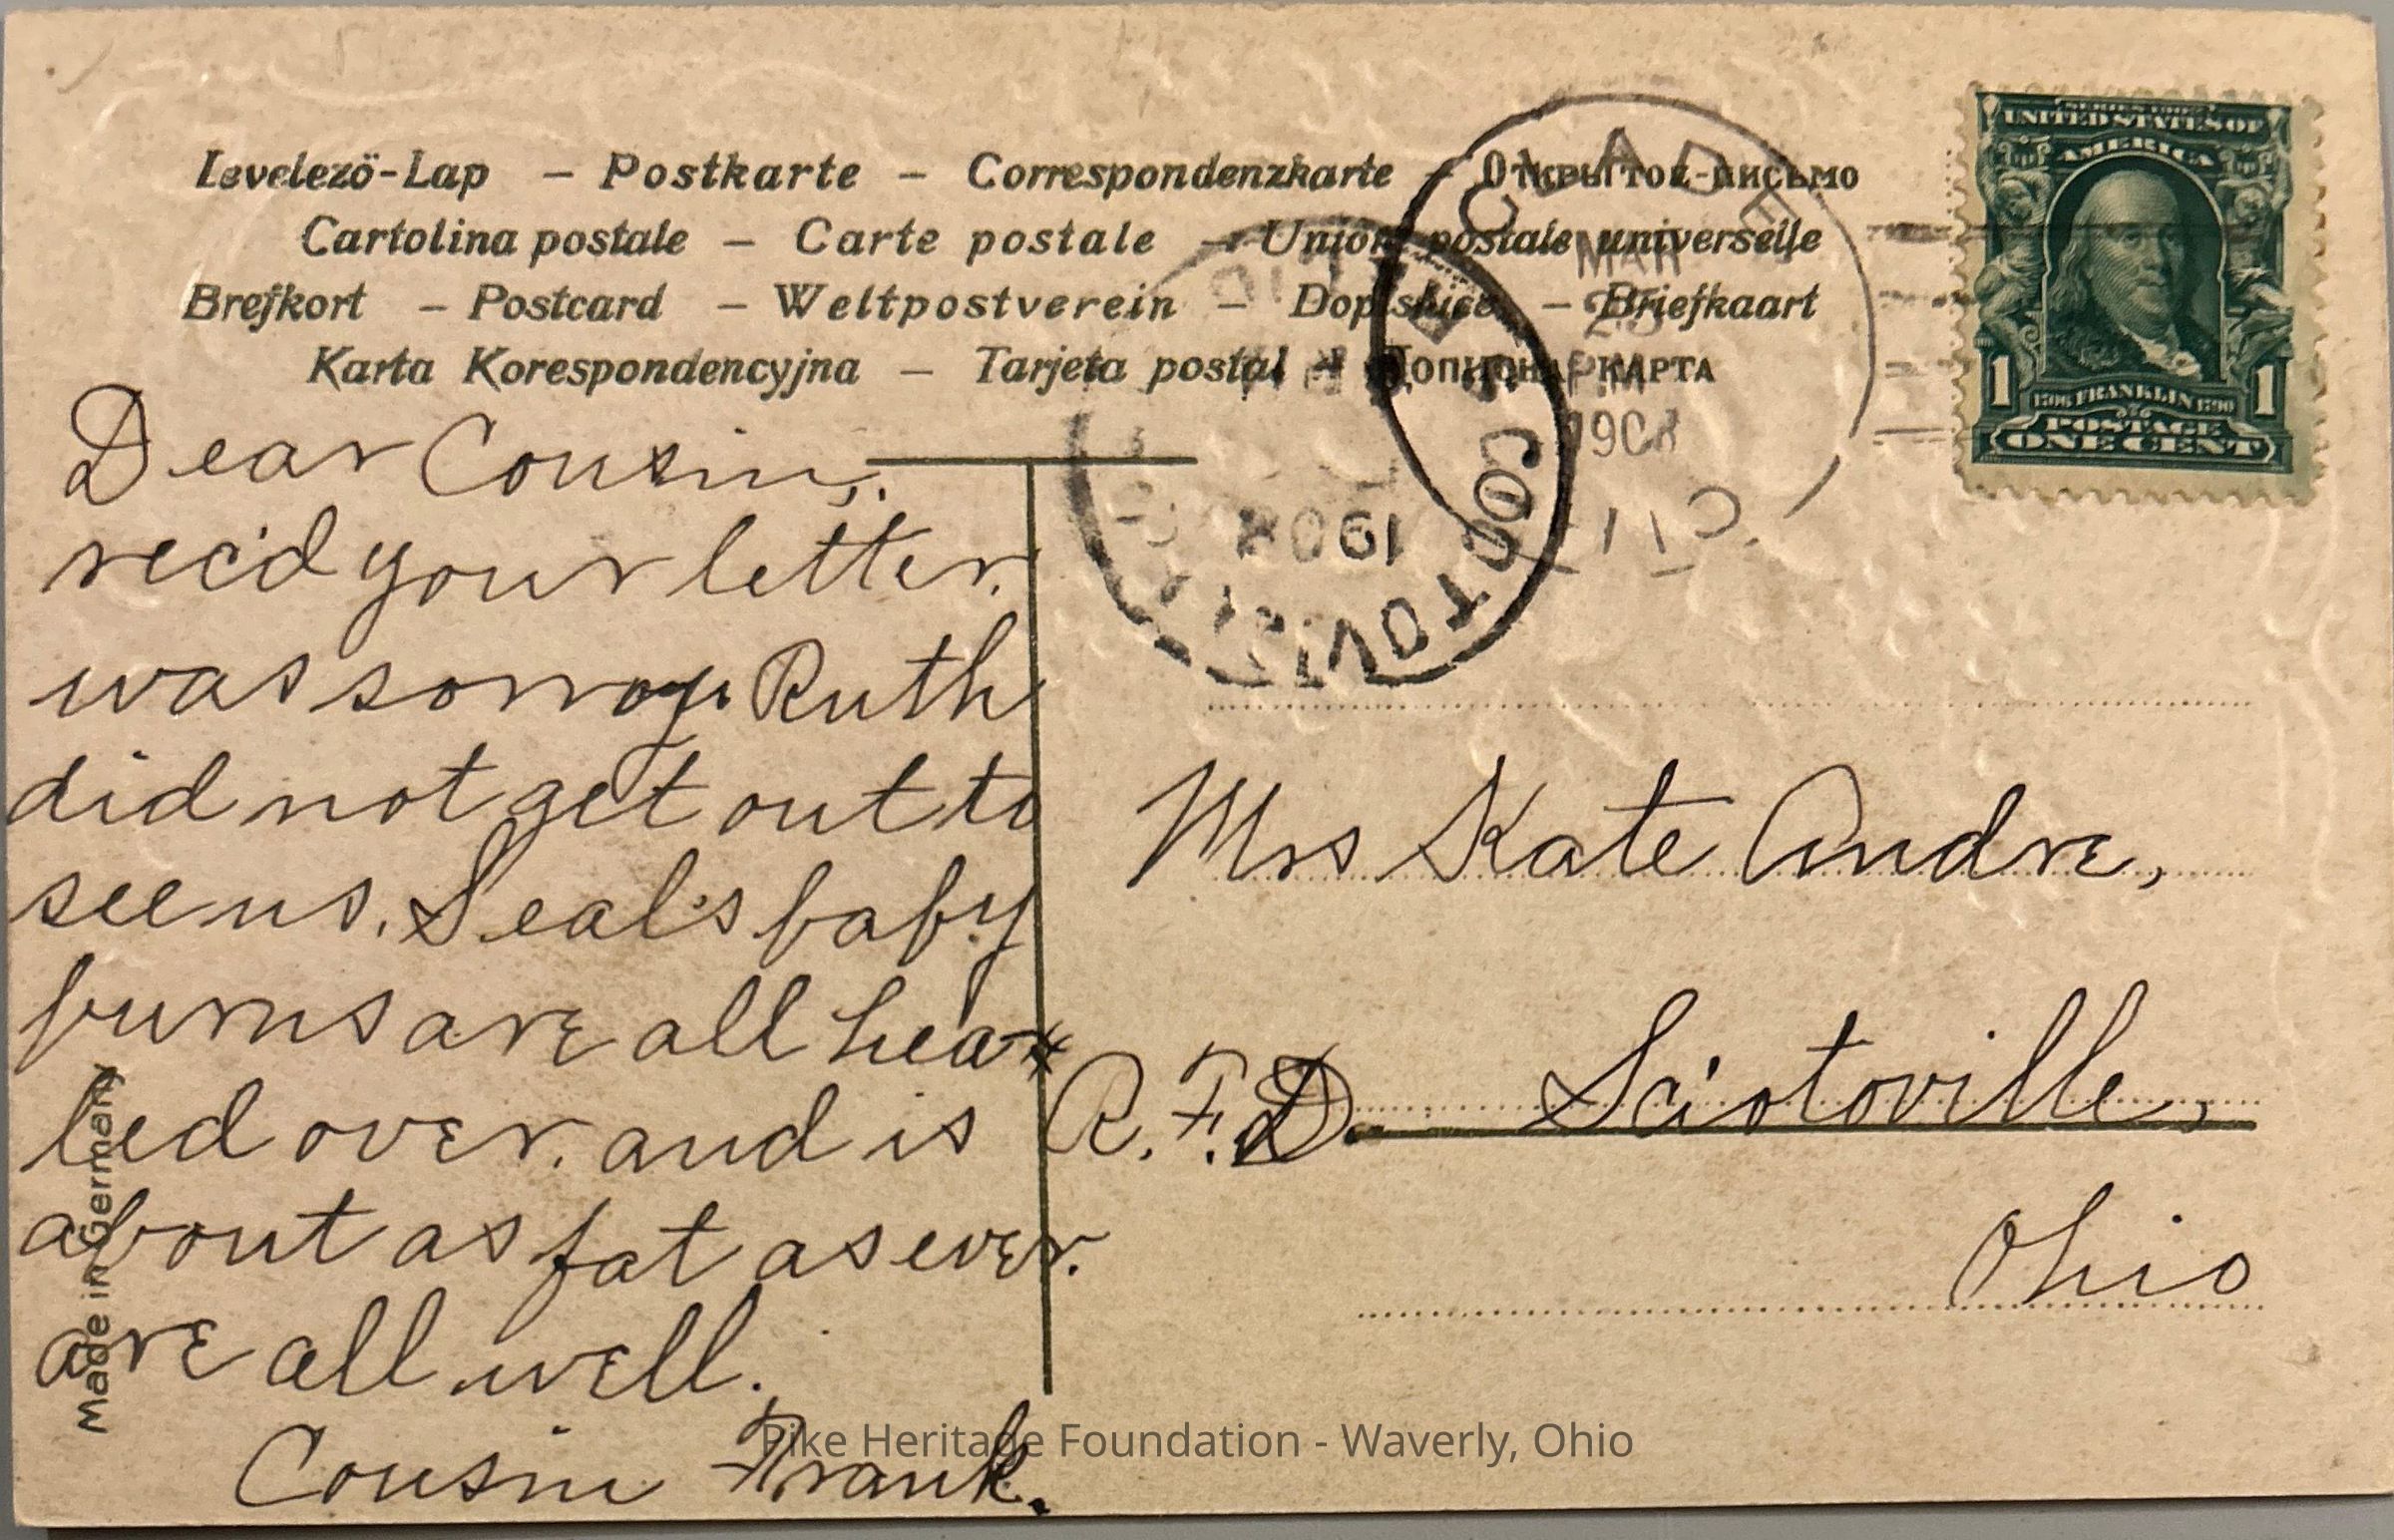 Levelezö-Lap – Postkarte – Correspondenzkarte – Открытое-письмо
Cartolina postale – Carte postale – Union postale universelle
Brejkort – Postcard – Weltpostverein – Dopisnice – Briefkaart
Karta Korespondencyjna – Tarjeta postal – Дописна КАРТА
GLADE
MAR
25
PM
1908
SCIOTOVILLE
1908
SERIES 1902
UNITED STATES OF
AMERICA
1 1706 FRANKLIN 1790 1
POSTAGE
ONE CENT
Dear Cousin,
rec'd your letter.
was sorry Ruth
did not get out to
see us. Seal's baby
burns are all hea
led over. and is
about as fat as ever.
are all well.
Cousin Frank.
Mrs Kate Andre,
R.F.D. Sciotoville,
Ohio
Made in Germany
Pike Heritage Foundation - Waverly, Ohio